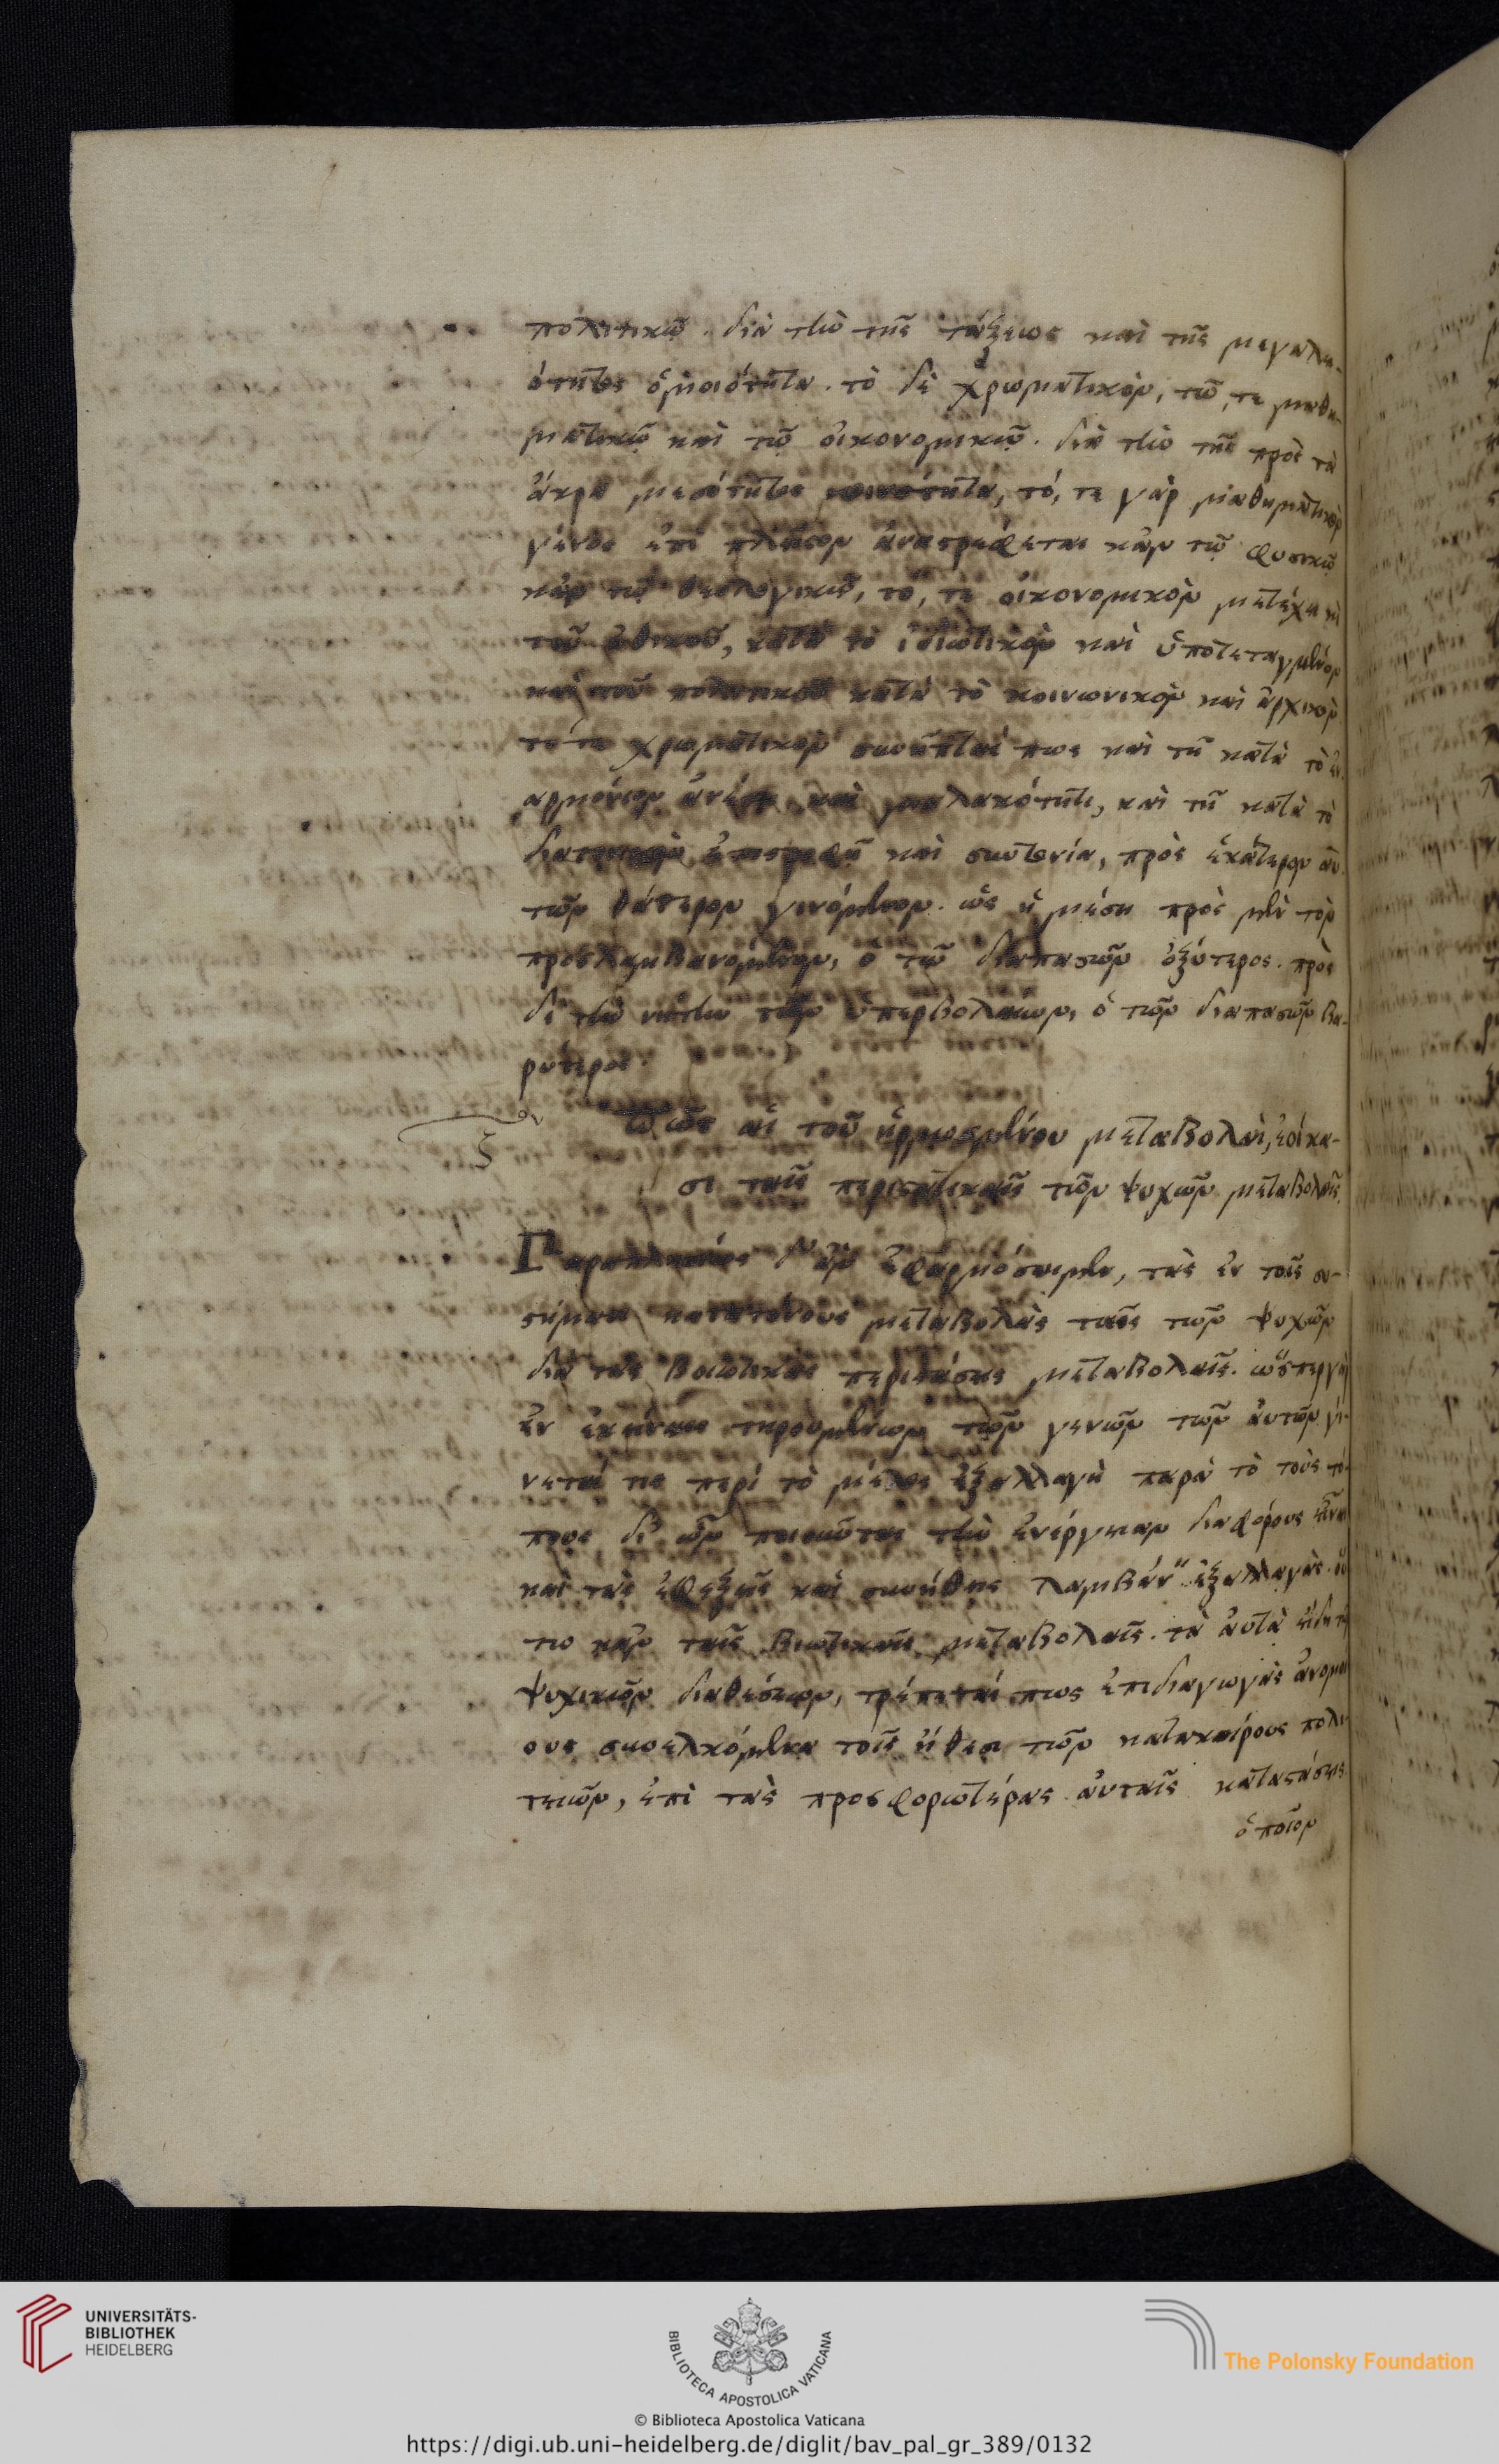 πολιτικῷ. διὰ τὴν τῆς τάξεως καὶ τῆς μεγαλει-
ότητος ὁμοιότητα. τὸ δὲ χρωματικὸν, τῶ, τε μαθη-
ματικῷ καὶ τῷ οἰκονομικῷ. διὰ τὴν τῆς πρὸς τὰ
ἄκρα μεσότητος κοινότητα, τό, τε γὰρ μαθηματικὸν
γένος ἐπὶ πλεῖστον ἀναστρέφεται κἀν τῷ φυσικῷ
κἀν τῷ θεολογικῷ, τό, τε οἰκονομικὸν μετέχει καὶ
τοῦ ἠθικοῦ, κατὰ τὸ ἰδιωτικὸν καὶ ὑποτεταγμένον
καὶ τοῦ πολιτικοῦ κατὰ τὸ κοινωνικὸν καὶ ἀρχικὸν
τό τε χρωματικὸν συνῆπταί πως καὶ τῇ κατὰ τὸ ἐν
αρμόνιον ἀνέσει καὶ μαλακότητι, καὶ τῇ κατὰ τὸ
διατονικὸν ἐπιστροφῇ καὶ συντονία, πρὸς ἑκάτερον αὐ
τῶν θάτερον γινόμενον. ὡς ἡ μέση πρὸς μὲν τὸν
προσλαμβανόμενον, ὁ τῶ διαπασῶν ὀξύτερος. πρὸς
δὲ τὴν νήτην τῶν ὑπερβολαίων, ὁ τῶν διαπασῶν βα-
ρύτερος.
ζον
πῶς αἱ τοῦ ἡρμοσμένου μεταβολαὶ, ἐοίκα-
σι ταῖς περιστατικαῖς τῶν ψυχῶν μεταβολαῖς
Παραπλησίως δ' ἂν ἐφαρμόσαιμεν, τὰς ἐν τοῖς συ-
στήμασι κατατόνους μεταβολὰς ταῖς τῶν ψυχῶν
διὰ τὰς βιωτικὰς περιστάσεις μεταβολαῖς. ὥσπερ γὰρ
ἐν ἐκείναις τηρουμένων τῶν γενῶν τῶν αὐτῶν γί-
νεταί τις περὶ τὸ μέλος ἐξαλλαγὴ παρὰ τὸ τοὺς τό-
πους δι' ὧν ποιοῦνται τὴν ἐνέργειαν διαφόρους εἶναι
καὶ τὰς ἐφεξῆς καὶ συνήθεις λαμβάν" ἐξαλλαγὰς. οὕ
τω κἀν ταῖς βιωτικαῖς μεταβολαῖς. τὰ αὐτὰ εἴδη τῶν
ψυχικῶν διαθέσεων, τρέπεταί πως ἐπιδιαγωγὰς ἀνομοί
ους συνελκόμενα τοῖς ἤθεσι τῶν κατακαίρους πολι
τειῶν, ἐπὶ τὰς προσφοριωτέρας αὐταῖς καταστάσεις.
ὁποῖον
UNIVERSITÄTS-
BIBLIOTHEK
HEIDELBERG
BIBLIOTECA APOSTOLICA VATICANA
© Biblioteca Apostolica Vaticana
The Polonsky Foundation
https://digi.ub.uni-heidelberg.de/diglit/bav_pal_gr_389/0132